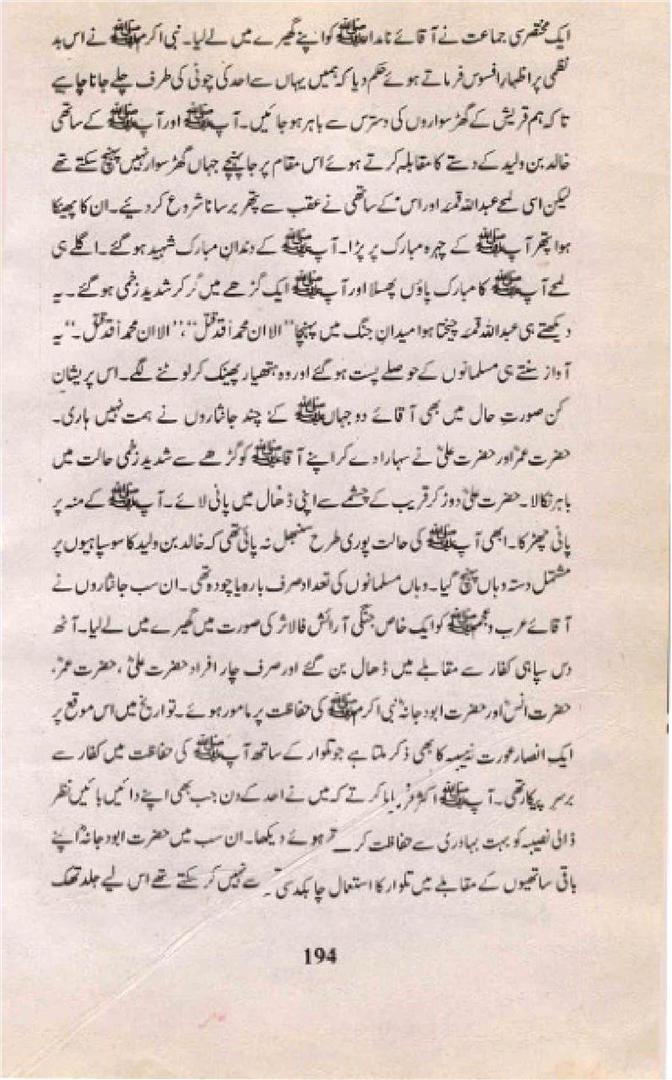 ایک مختصری جماعت نے آقائے نامدارﷺ کو اپنے گھیرے میں لے لیا۔ نبی اکرمﷺ نے اس بد
نظمی پر اظہار افسوس فرماتے ہوئے حکم دیا کہ ہمیں یہاں سے احد کی چوٹی کی طرف چلے جانا چاہیے
تاکہ ہم قریش کے گھڑ سواروں کی دسترس سے باہر ہو جائیں۔ آپﷺ اور آپﷺ کے ساتھی
خالد بن ولید کے دستے کا مقابلہ کرتے ہوئے اس مقام پر جا پہنچے جہاں گھڑ سوار نہیں پہنچ سکتے تھے
لیکن اسی لمحے عبداللہ قمئہ اور اس کے ساتھی نے عقب سے پتھر برسانا شروع کر دیئے۔ ان کا پھینکا
ہوا پتھر آپﷺ کے چہرہ مبارک پر پڑا۔ آپﷺ کے دندان مبارک شہید ہو گئے۔ اگلے ہی
لمحے آپﷺ کا مبارک پاؤں پھسلا اور آپﷺ ایک گڑھے میں گر کر شدید زخمی ہو گئے۔ یہ
دیکھتے ہی عبداللہ قمئہ چیختا ہوا میدانِ جنگ میں پہنچا ”الا ان محمداً قد قتل“، ”الا ان محمداً قد قتل۔“ یہ
آواز سنتے ہی مسلمانوں کے حوصلے پست ہو گئے اور وہ ہتھیار پھینک کر لوٹنے لگے۔ اس پریشان
کن صورتِ حال میں بھی آقائے دو جہاںﷺ کے چند جانثاروں نے ہمت نہیں ہاری۔
حضرت عمرؓ اور حضرت علیؓ نے سہارا دے کر اپنے آقاﷺ کو گڑھے سے شدید زخمی حالت میں
باہر نکالا۔ حضرت علیؓ دوڑ کر قریب کے چشمے سے اپنی ڈھال میں پانی لائے۔ آپﷺ کے منہ پر
پانی چھڑکا۔ ابھی آپﷺ کی حالت پوری طرح سنبھل نہ پائی تھی کہ خالد بن ولید کا سو سپاہیوں پر
مشتمل دستہ وہاں پہنچ گیا۔ وہاں مسلمانوں کی تعداد صرف بارہ یا چودہ تھی۔ ان سب جانثاروں نے
آقائے عرب و عجمﷺ کو ایک خاص جنگی آرائش فالانژ کی صورت میں گھیرے میں لے لیا۔ آٹھ
دس سپاہی کفار سے مقابلے میں ڈھال بن گئے اور صرف چار افراد حضرت علیؓ، حضرت عمرؓ،
حضرت انسؓ اور حضرت ابو دجانہؓ نبی اکرمﷺ کی حفاظت پر مامور ہوئے۔ تواریخ میں اس موقع پر
ایک انصار عورت نسیبہ کا بھی ذکر ملتا ہے جو تلوار کے ساتھ آپﷺ کی حفاظت میں کفار سے
برسرِ پیکار تھی۔ آپﷺ اکثر فرمایا کرتے کہ میں نے احد کے دن جب بھی اپنے دائیں بائیں نظر
ڈالی نصیبہ کو بہت بہادری سے حفاظت کرتے ہوئے دیکھا۔ ان سب میں حضرت ابو دجانہؓ اپنے
باقی ساتھیوں کے مقابلے میں تلوار کا استعمال چابکدستی سے نہیں کر سکتے تھے اس لیے جلد تھک
194